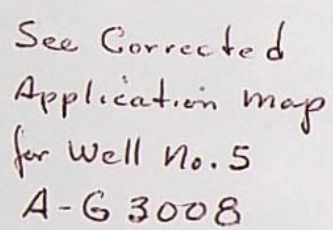 See Corrected
Application map
for Well No. 5
A-G 3008